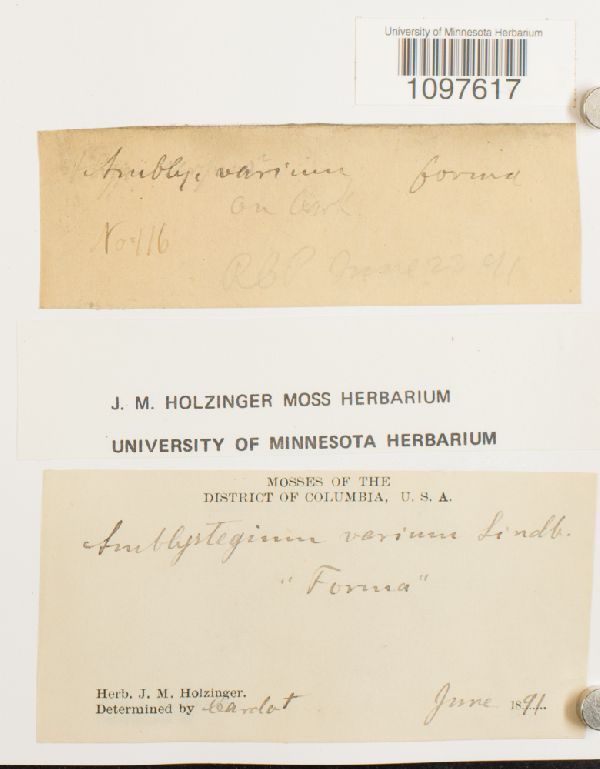 University of Minnesota Herbarium
1097617
Ambly. varium forma
on
No. 116
June 22 91
J. M. HOLZINGER MOSS HERBARIUM
UNIVERSITY OF MINNESOTA HERBARIUM
MOSSES OF THE
DISTRICT OF COLUMBIA, U. S. A.
Amblystegium varium Lindb.
"Forma"
Herb. J. M. Holzinger.
Determined by Cardot June 1891.